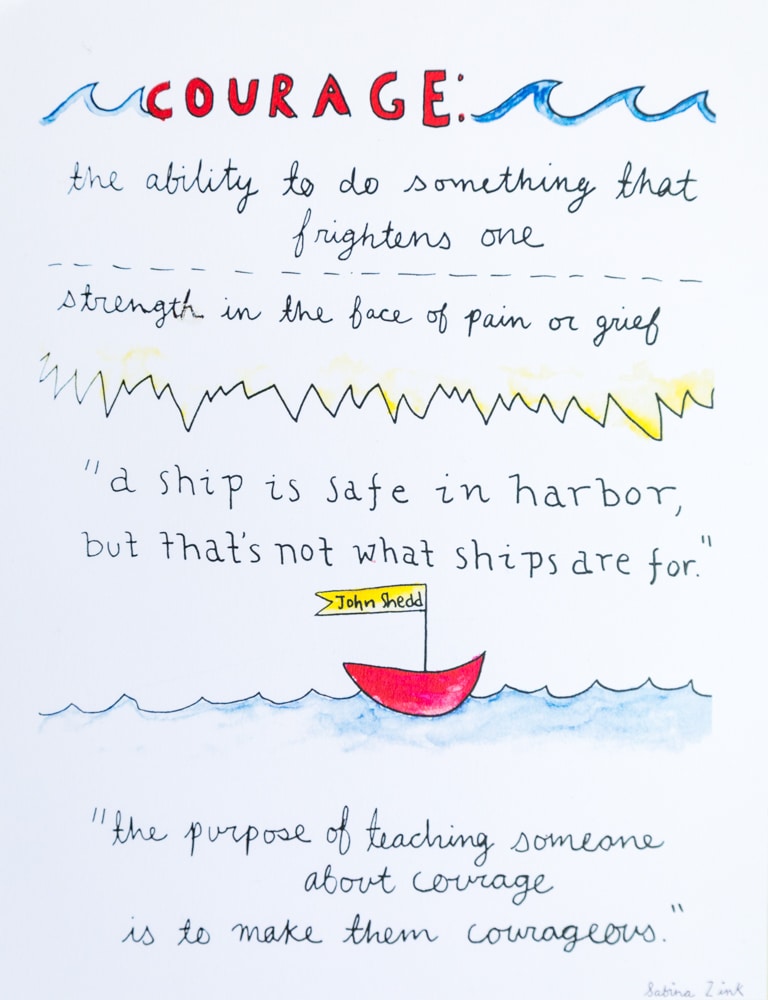 COURAGE:
the ability to do something that
frightens one
strength in the face of pain or grief
"a ship is safe in harbor,
but that's not what ships are for."
John Shedd
"the purpose of teaching someone
about courage
is to make them courageous."
Sabina Zink